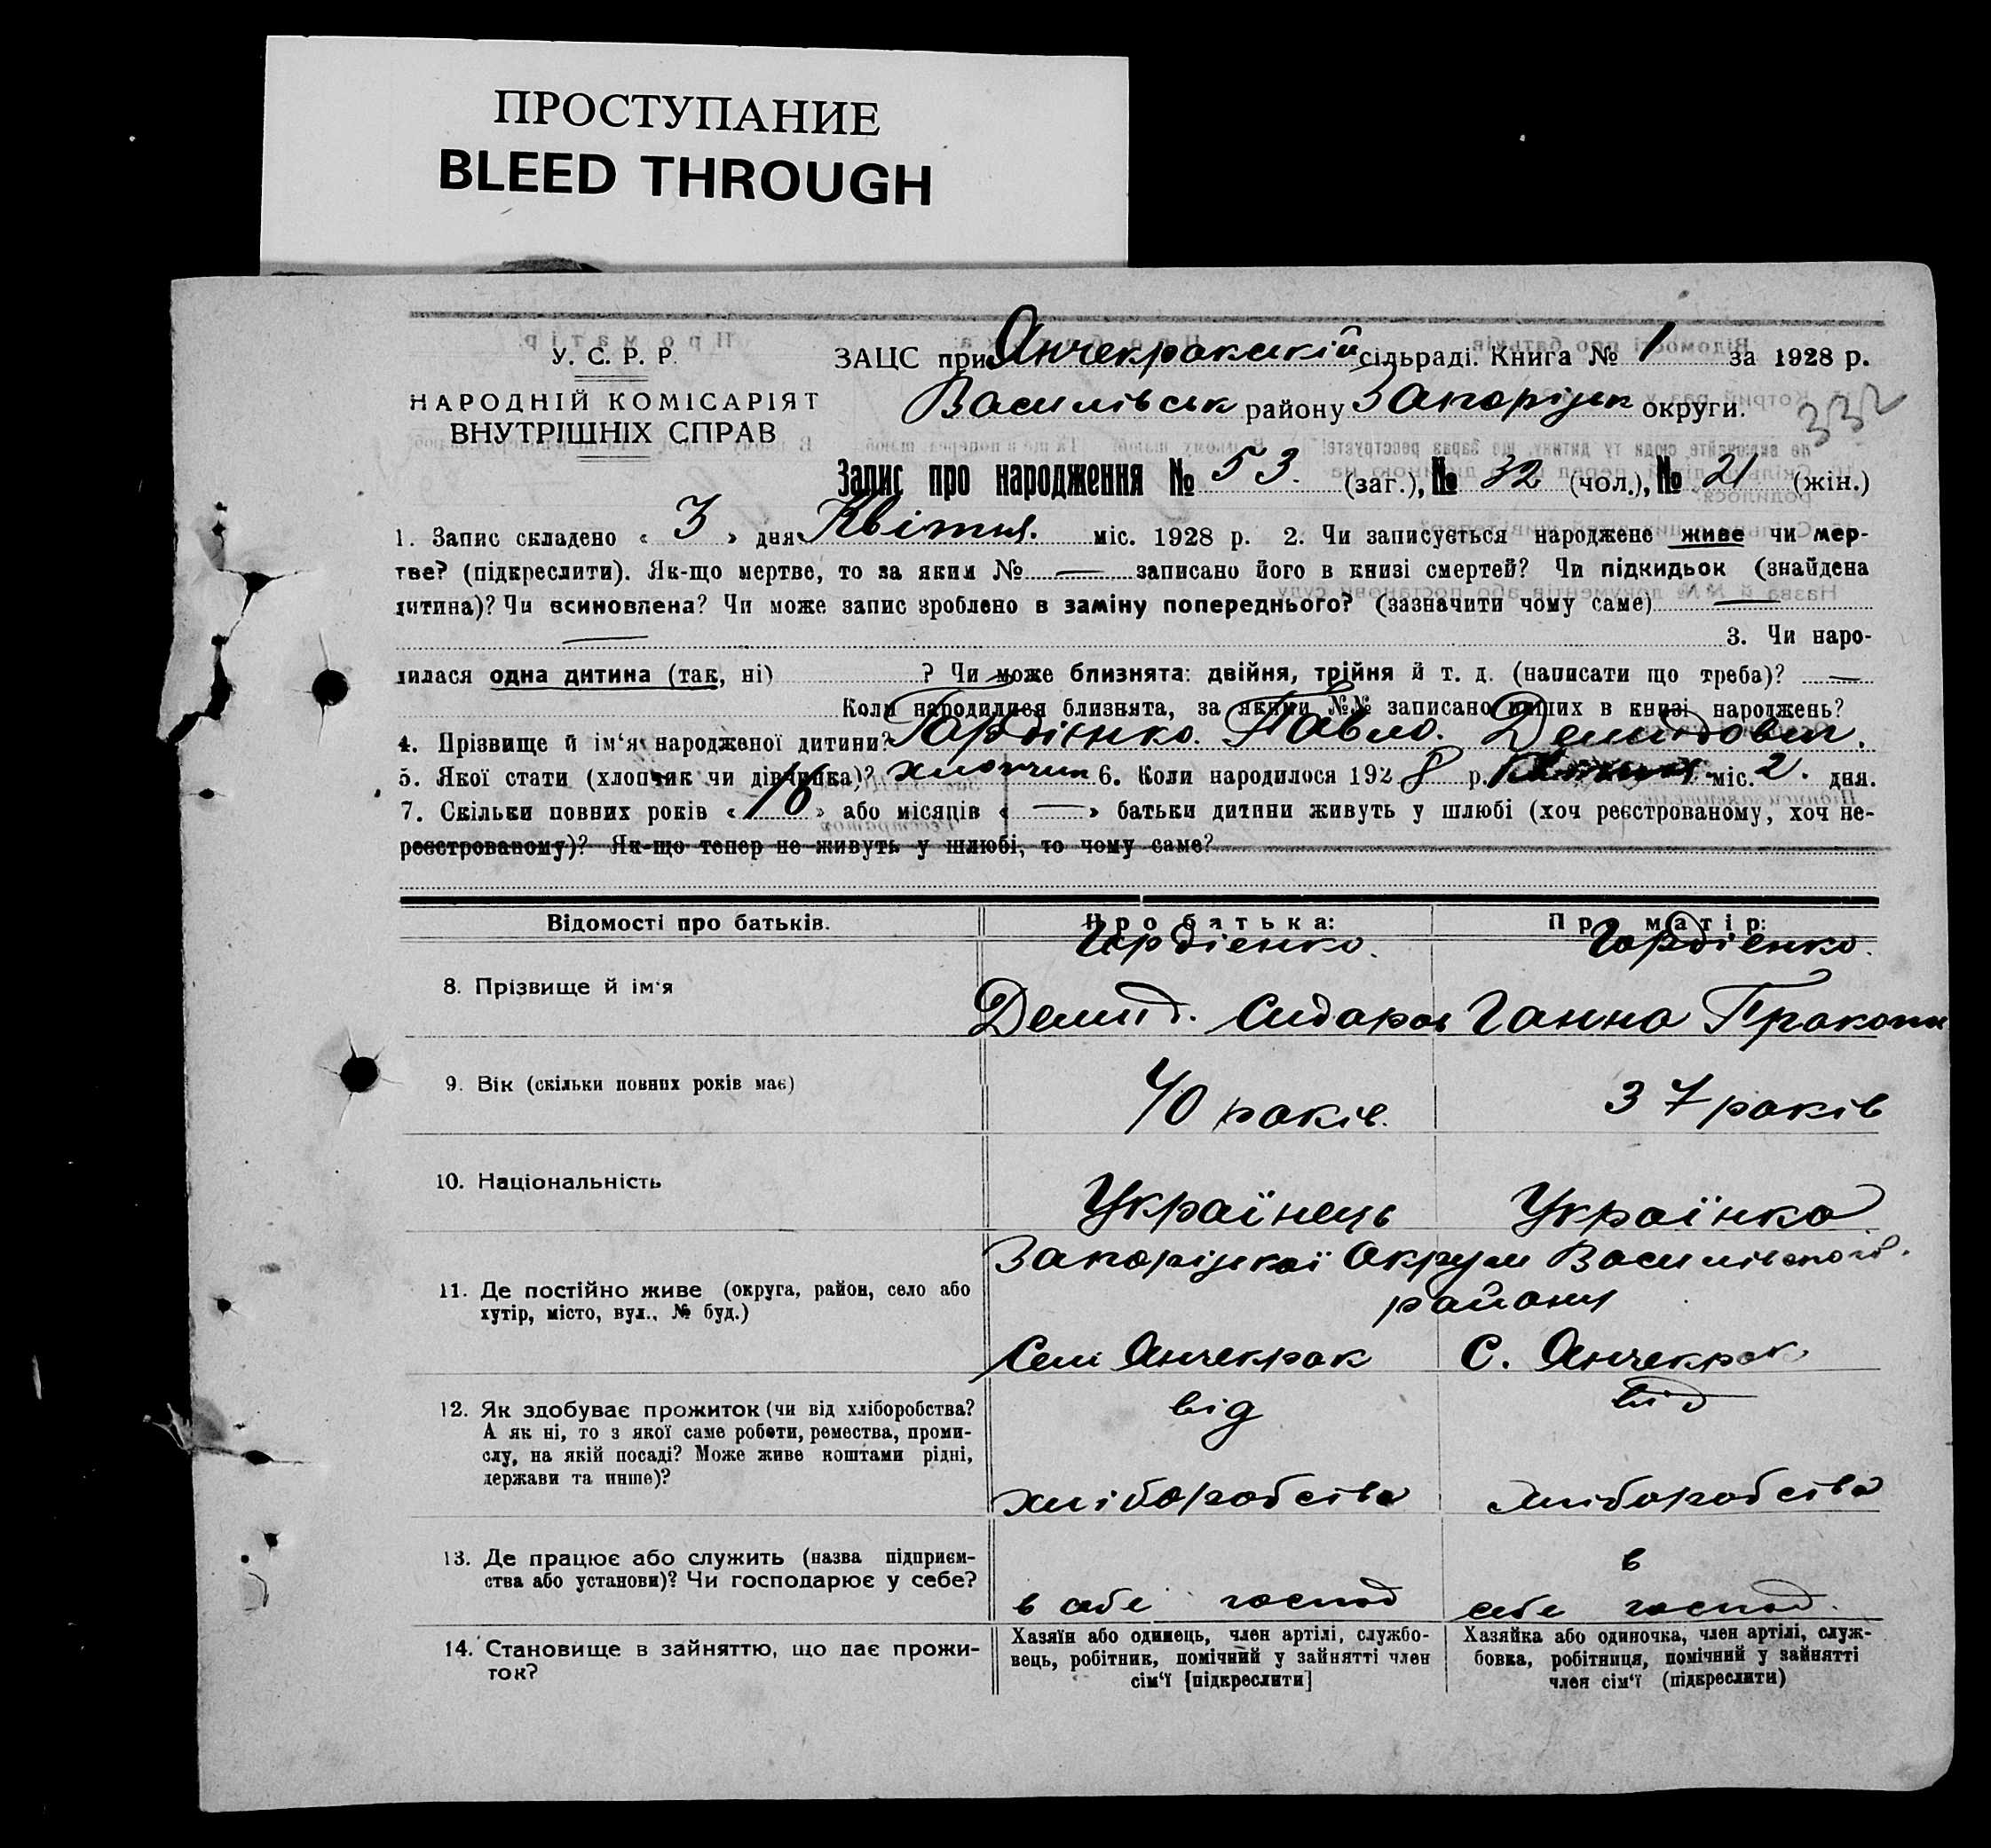 ПРОСТУПАНИЕ
BLEED THROUGH
У. С. Р. Р.
НАРОДНІЙ КОМІСАРІЯТ
ВНУТРІШНІХ СПРАВ
ЗАЦС при Янчекракській сільраді. Книга № 1 за 1928 р.
Василівськ району Запоріжськ округи.
332
Запис про народження № 53. (заг.), № 32 (чол.), № 21 (жін.)
1. Запис складено « 3 » дня Квітня. міс. 1928 р. 2. Чи записується народжене живе чи мер-
тве? (підкреслити). Як-що мертве, то за яким № — записано його в книзі смертей? Чи підкидьок (знайдена
дитина)? Чи всиновлена? Чи може запис зроблено в заміну попереднього? (зазначити чому саме) —
— 3. Чи наро-
дилася одна дитина (так, ні) ? Чи може близнята: двійня, трійня й т. д. (написати що треба)? —
Коли народилися близнята, за якими №№ записано інших в книзі народжень?
4. Прізвище й ім‘я народженої дитини? Гордієнко. Павло. Демидович.
5. Якої стати (хлопчик чи дівчинка)? хлопчик 6. Коли народилося 1928 р. міс. 2. дня.
7. Скільки повних років « 16 » або місяців « — » батьки дитини живуть у шлюбі (хоч реєстрованому, хоч не-
реєстрованому)? Як-що тепер не живуть у шлюбі, то чому саме?
Відомості про батьків. Про батька: Про матір:
Гордієнко. Гордієнко.
8. Прізвище й ім‘я
Демид. Сидоров Ганна Прокопи
9. Вік (скільки повних років має)
40 років. 37 років
10. Національність
Українець Українка
Запоріжської Округи Василівського
районы
11. Де постійно живе (округа, район, село або
хутір, місто, вул., № буд.)
Селі Янчекрак С. Янчекрак
12. Як здобуває прожиток (чи від хліборобства?
А як ні, то з якої саме роботи, ремества, проми-
слу, на якій посаді? Може живе коштами рідні,
держави та инше)?
від від
хліборобства хліборобства
13. Де працює або служить (назва підприєм-
ства або установи)? Чи господарює у себе?
в
в себе господ себе господ.
14. Становище в зайняттю, що дає прожи-
ток?
Хазяїн або одинець, член артілі, службо-
вець, робітник, помічний у зайнятті член
сім‘ї [підкреслити]
Хазяйка або одиночка, член артілі, служ-
бовка, робітниця, помічний у зайнятті
член сім‘ї (підкреслити)